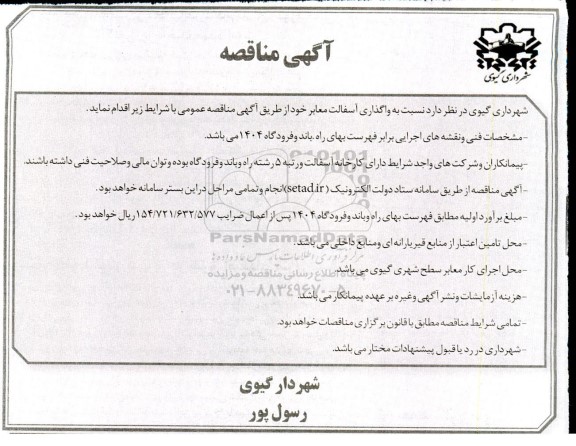 آگهی مناقصه
شهرداری گیوی
شهرداری گیوی در نظر دارد نسبت به واگذاری آسفالت معابر خود از طریق آگهی مناقصه عمومی با شرایط زیر اقدام نماید .
-مشخصات فنی ونقشه های اجرایی برابر فهرست بهای راه ،باند وفرودگاه ۱۴۰۴می باشد.
-پیمانکاران وشرکت های واجد شرایط دارای کارخانه آسفالت ورتبه ۵ رشته راه وباند وفرودگاه بوده وتوان مالی وصلاحیت فنی داشته باشند.
-آگهی مناقصه از طریق سامانه ستاد دولت الکترونیک (setad.ir)انجام وتمامی مراحل در این بستر سامانه خواهد بود .
-مبلغ برآورد اولیه مطابق فهرست بهای راه وباند وفرودگاه ۱۴۰۴ پس از اعمال ضرایب ۱۵۴/۷۲۱/۶۳۲/۵۷۷ ریال خواهد بود .
ParsNamadData
-محل تامین اعتبار از منابع قیر یارانه ای ومنابع داخلی می باشد.
-محل اجرای کار معابر سطح شهری گیوی می باشد.
پایگاه اطلاع رسانی مناقصه و مزایده
۰۲۱-۸۸۳۴۹۶۷۰-۵
-هزینه آزمایشات ونشر آگهی وغیره بر عهده پیمانکار می باشد.
-تمامی شرایط مناقصه مطابق با قانون برگزاری مناقصات خواهد بود.
-شهرداری در رد یا قبول پیشنهادات مختار می باشد.
شهردار گیوی
رسول پور